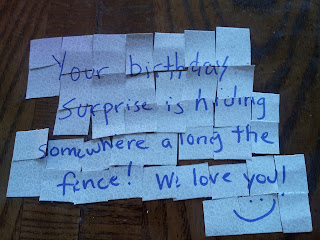 Your birthday
surprise is hiding
somewhere along the
fence! We love you!